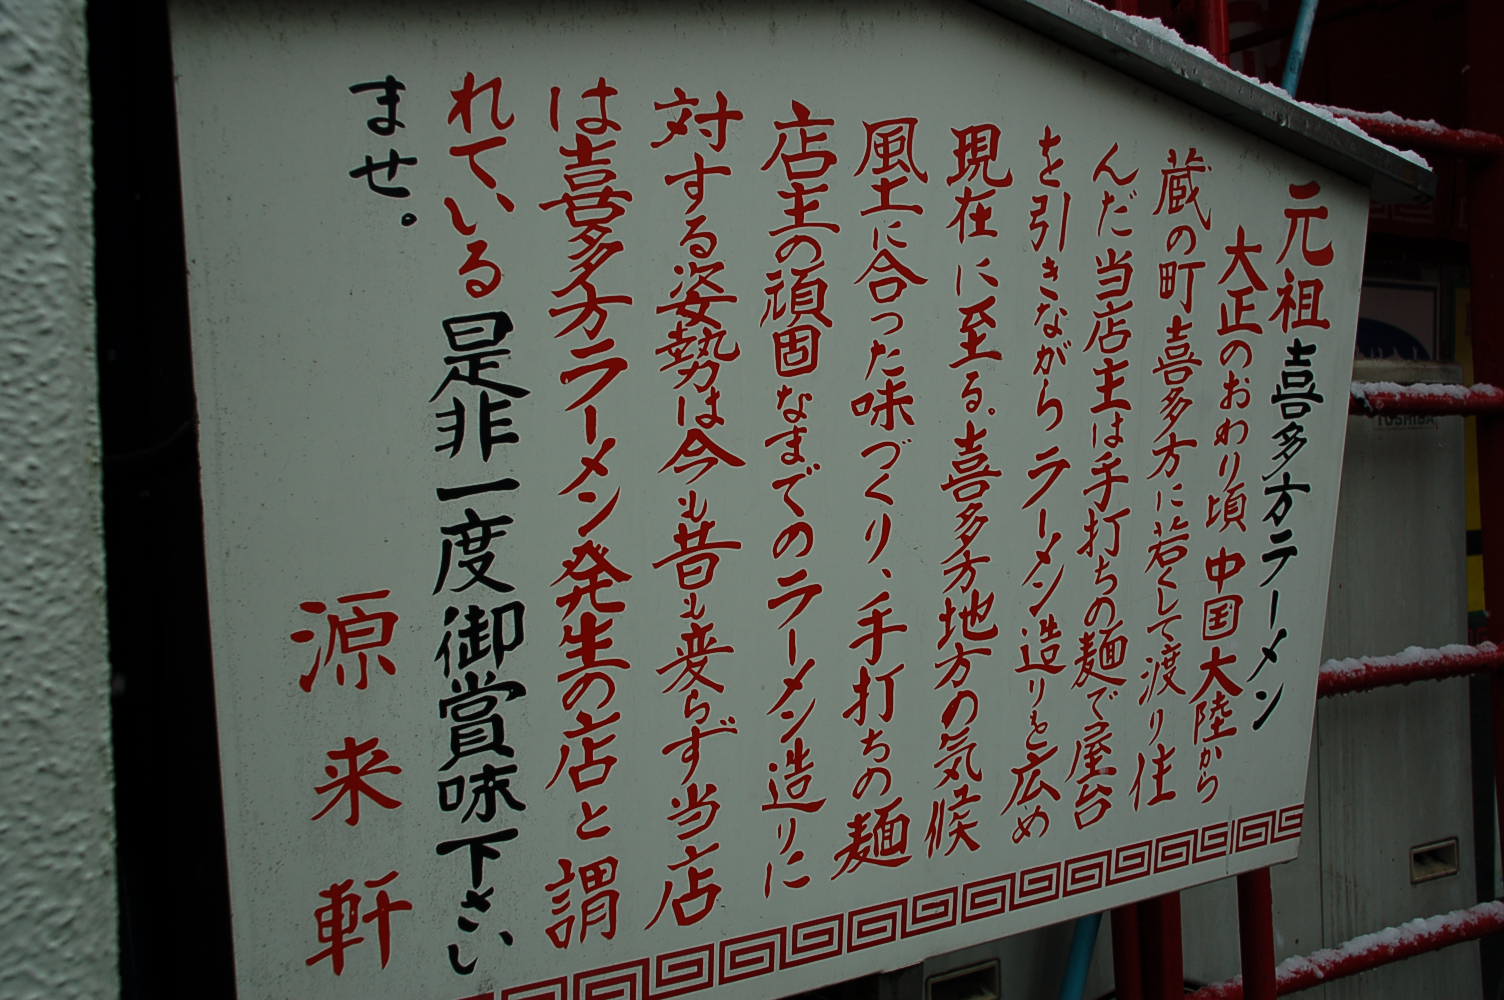 元祖喜多方ラーメン
大正のおわり頃中国大陸から
蔵の町喜多方に若くして渡り住
んだ当店主は手打ちの麺で屋台
を引きながらラーメン造りを広め
現在に至る.喜多方地方の気候
風土に合った味づくり、手打ちの麺
店主の頑固なまでのラーメン造りに
対する姿勢は今も昔も変らず当店
は喜多方ラーメン発生の店と謂
れている是非一度御賞味下さい
ませ。
源来軒
TOSHIBA